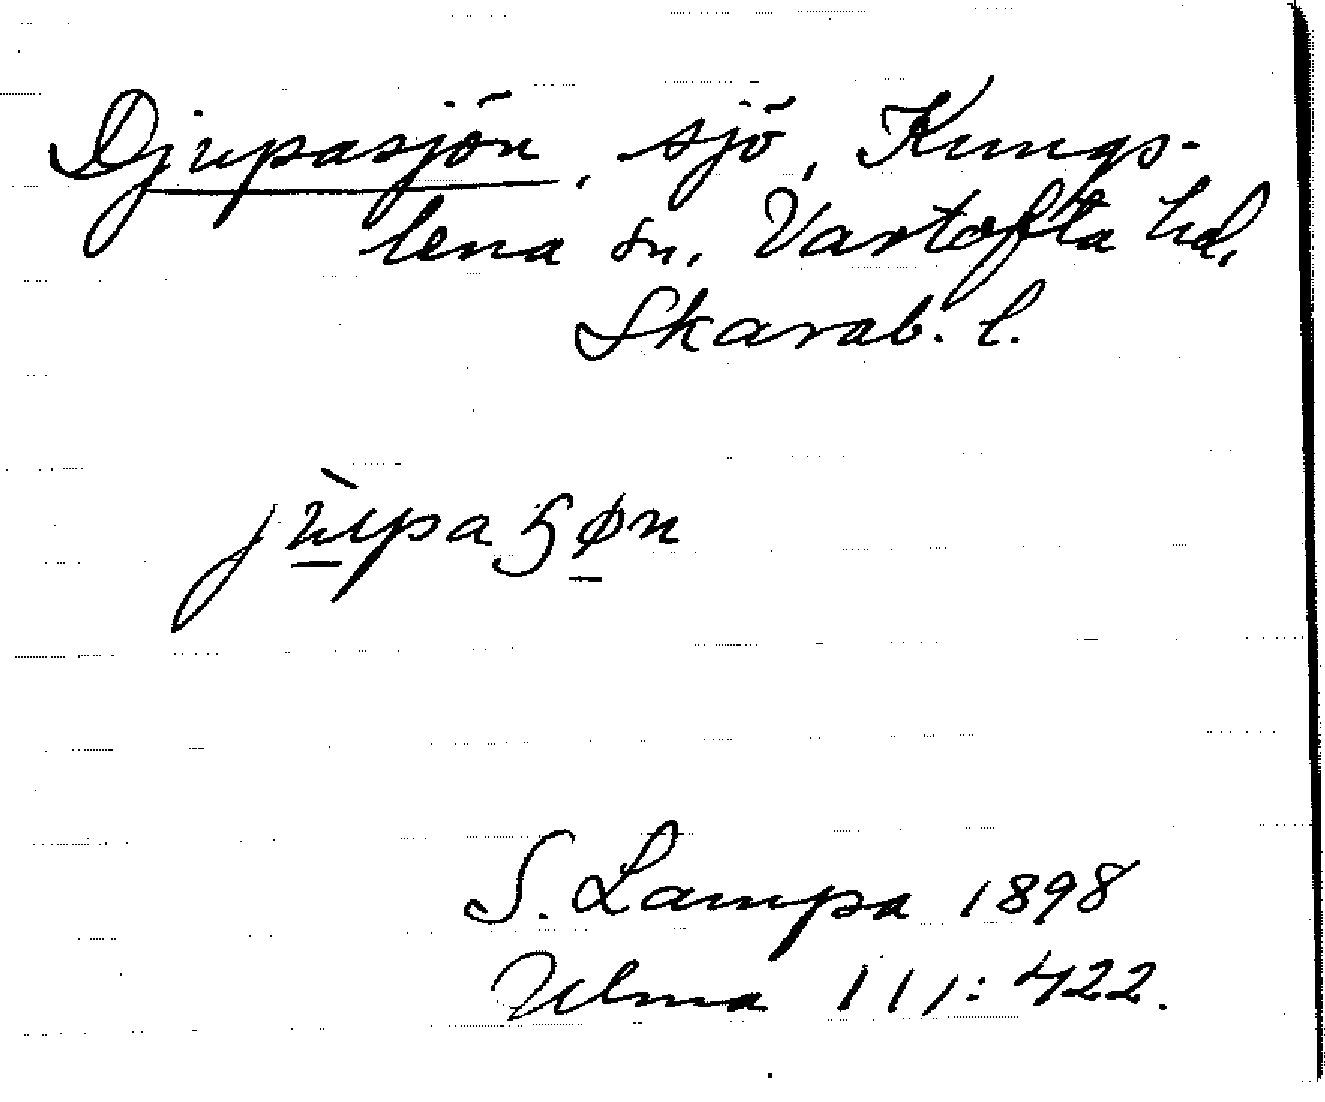 Djupasjön, sjö, Kungs-
lena sn. Vartofta hd,
Skarab. l.
jùpaɧøn
S. Lampa 1898
Ulma 111:422.